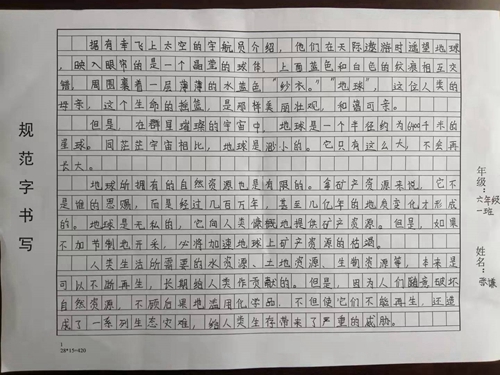 规范字书写
据有幸飞上太空的宇航员介绍，他们在天际遨游时遥望地球，
映入眼帘的是一个晶莹的球体，上面蓝色和白色的纹痕相互交
错，周围裹着一层薄薄的水蓝色“纱衣”。“地球”，这位人类的
母亲，这个生命的摇篮，是那样美丽壮观，和蔼可亲。
但是，在群星璀璨的宇宙中，地球是一个半径约为6400千米的
星球。同茫茫宇宙相比，地球是渺小的。它只有这么大，不会再
长大。
地球的拥有的自然资源也是有限的。拿矿产资源来说，它不
是谁的恩赐，而是经过几百万年，甚至几亿年的地质变化才形成
的。地球是无私的，它向人类慷慨地提供矿产资源。但是，如果
不加节制地开采，必将加速地球上矿产资源的枯竭。
人类生活所需要的水资源、土地资源、生物资源等，本来是
可以不断再生，长期给人类作贡献的。但是，因为人们随意破坏
自然资源，不顾后果地滥用化学品，不但使它们不能再生，还造
成了一系列生态灾难，给人类生存带来了严重的威胁。
年级：六年级一班
姓名：
1
28*15=420